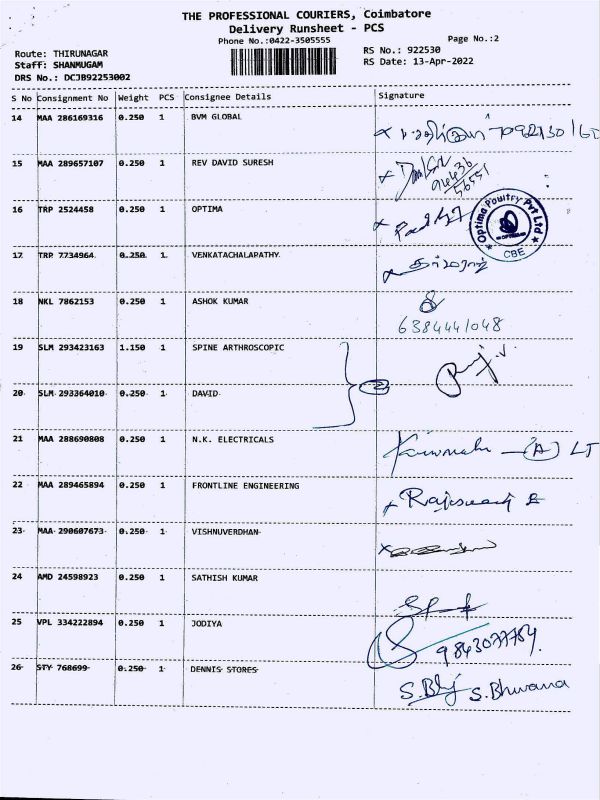 THE PROFESSIONAL COURIERS, Coimbatore
Delivery Runsheet - PCS
Phone No.:0422-3505555
Page No.:2
Route: THIRUNAGAR
RS No.: 922530
Staff: SHANMUGAM
RS Date: 13-Apr-2022
DRS No.: DCJB92253002
S No Consignment No Weight PCS Consignee Details Signature
14 MAA 286169316 0.250 1 BVM GLOBAL
15 MAA 289657107 0.250 1 REV DAVID SURESH
94436
56551
16 TRP 2524458 0.250 1 OPTIMA
Optima Poultry Pvt Ltd
CBE
17 TRP 7734964 0.250 1 VENKATACHALAPATHY
18 NKL 7862153 0.250 1 ASHOK KUMAR
6384441048
19 SLM 293423163 1.150 1 SPINE ARTHROSCOPIC
20 SLM 293364010 0.250 1 DAVID
2
21 MAA 288690808 0.250 1 N.K. ELECTRICALS
(A) LT
22 MAA 289465894 0.250 1 FRONTLINE ENGINEERING
23 MAA 290607673 0.250 1 VISHNUVERDHAN
24 AMD 24598923 0.250 1 SATHISH KUMAR
25 VPL 334222894 0.250 1 JODIYA
9843077784
26 STY 768699 0.250 1 DENNIS STORES
S. Bhuvana